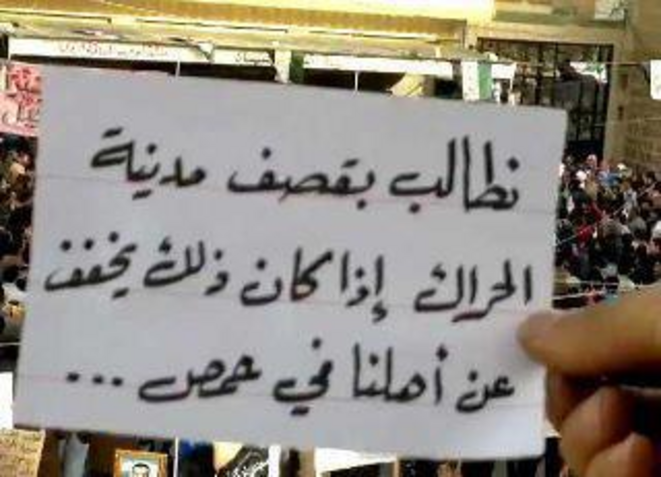 نطالب بقصف مدينة
الحراك إذا كان ذلك يخفف
عن أهلنا في حمص ...